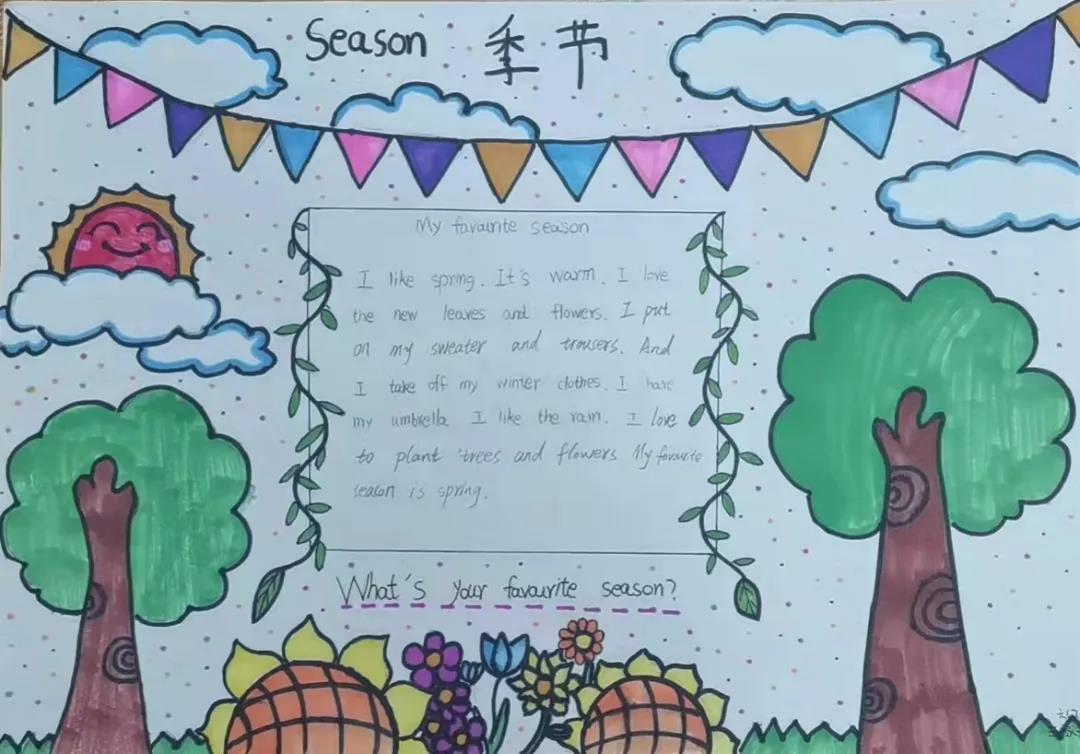 Season 季节
My favourite season
I like spring. It's warm. I love
the new leaves and flowers. I put
on my sweater and trousers. And
I take off my winter clothes. I have
my umbrella I like the rain. I love
to plant trees and flowers My favourite
season is spring.
What's your favourite season?